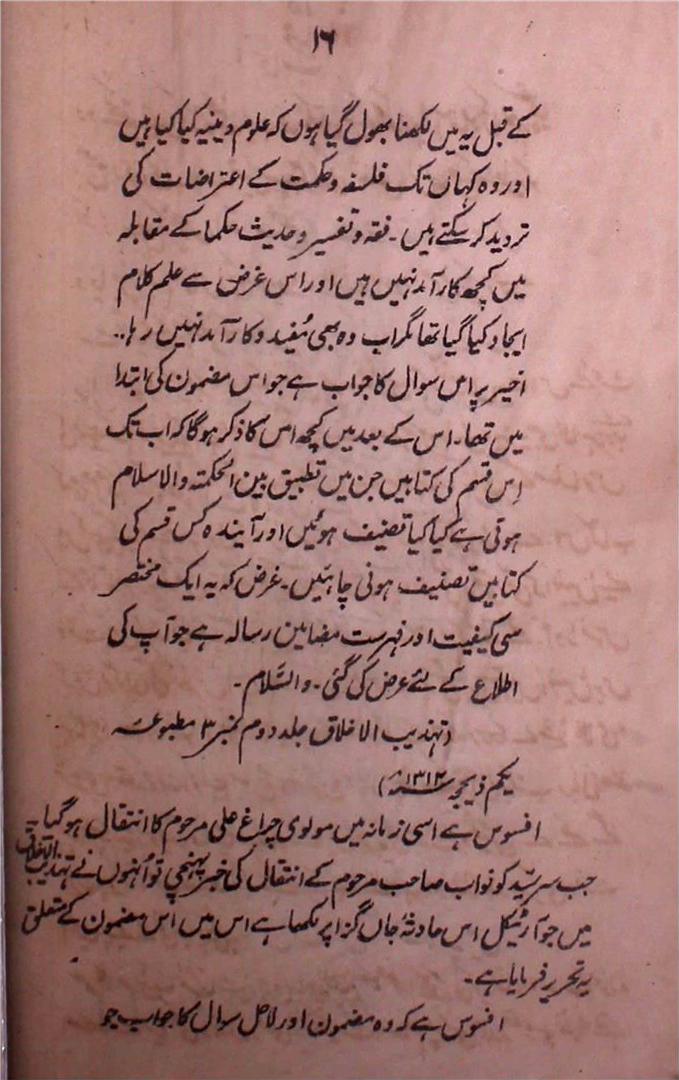 ۱۶
کے قبل یہ میں لکھنا بھول گیا ہوں کہ علوم دینیہ کیا کیا ہیں
اور وہ کہاں تک فلسفہ و حکمت کے اعتراضات کی
تردید کر سکتے ہیں۔ فقہ و تفسیر و حدیث حکما کے مقابلہ
میں کچھ کارآمد نہیں ہیں اور اس غرض سے علم کلام
ایجاد کیا گیا تھا مگر اب وہ بھی مُفید و کارآمد نہیں رہا۔۔
اخیر پر اس سوال کا جواب ہے جو اس مضمون کی ابتدا
میں تھا۔ اس کے بعد میں کچھ اس کا ذکر ہوگا کہ اب تک
اِس قسم کی کتابیں جن میں تطبیق بین الحکمتہ والاسلام
ہوتی ہے کیا کیا تصنیف ہوئیں اور آیندہ کس قسم کی
کتابیں تصنیف ہونی چاہئیں۔ غرض کہ یہ ایک مختصر
سی کیفیت اور فہرست مضامین رسالہ ہے جو آپ کی
اطلاع کے لئے عرض کی گئی۔ والسَّلام۔
(تہذیب الاخلاق جلد دوم نمبر ۳ مطبوعہ
یکم ذیحجہ ۱۳۱۲ھ)
افسوس ہے اسی زمانہ میں مولوی چراغ علی مرحوم کا انتقال ہوگیا۔
جب سرسیّد کو نواب صاحب مرحوم کے انتقال کی خبر پہنچی تو اُنہوں نے تہذیب الاخلاق
میں جو آرٹیکل اس حادثۂ جاں گزا پر لکھا ہے اس میں اس مضمون کے متعلق
یہ تحریر فرمایا ہے۔
افسوس ہے کہ وہ مضمون اور لاحل سوال کا جواب جو